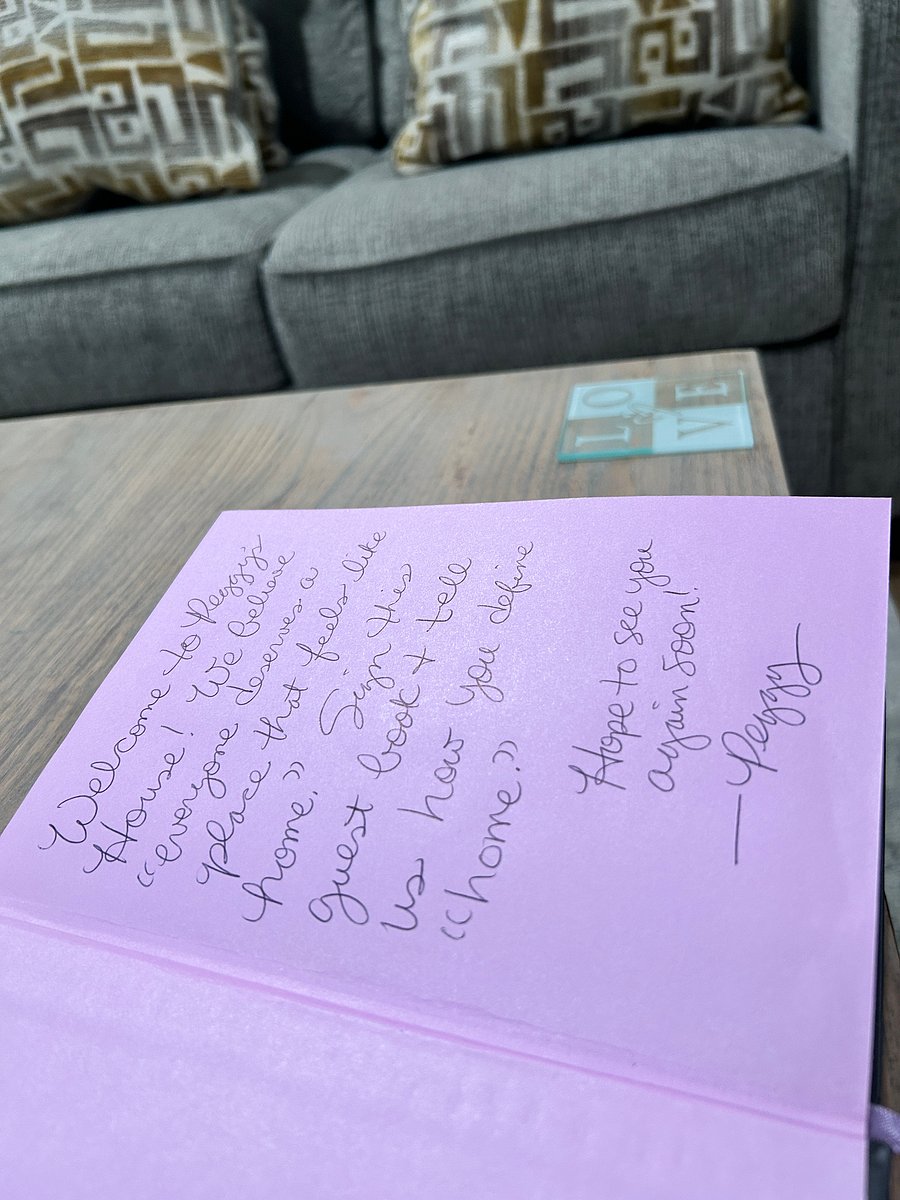 Welcome to Peggy's
House! We believe
"everyone deserves a
place that feels like
home." Sign this
guest book + tell
us how you define
"home."
Hope to see you
again soon!
—Peggy
LOVE